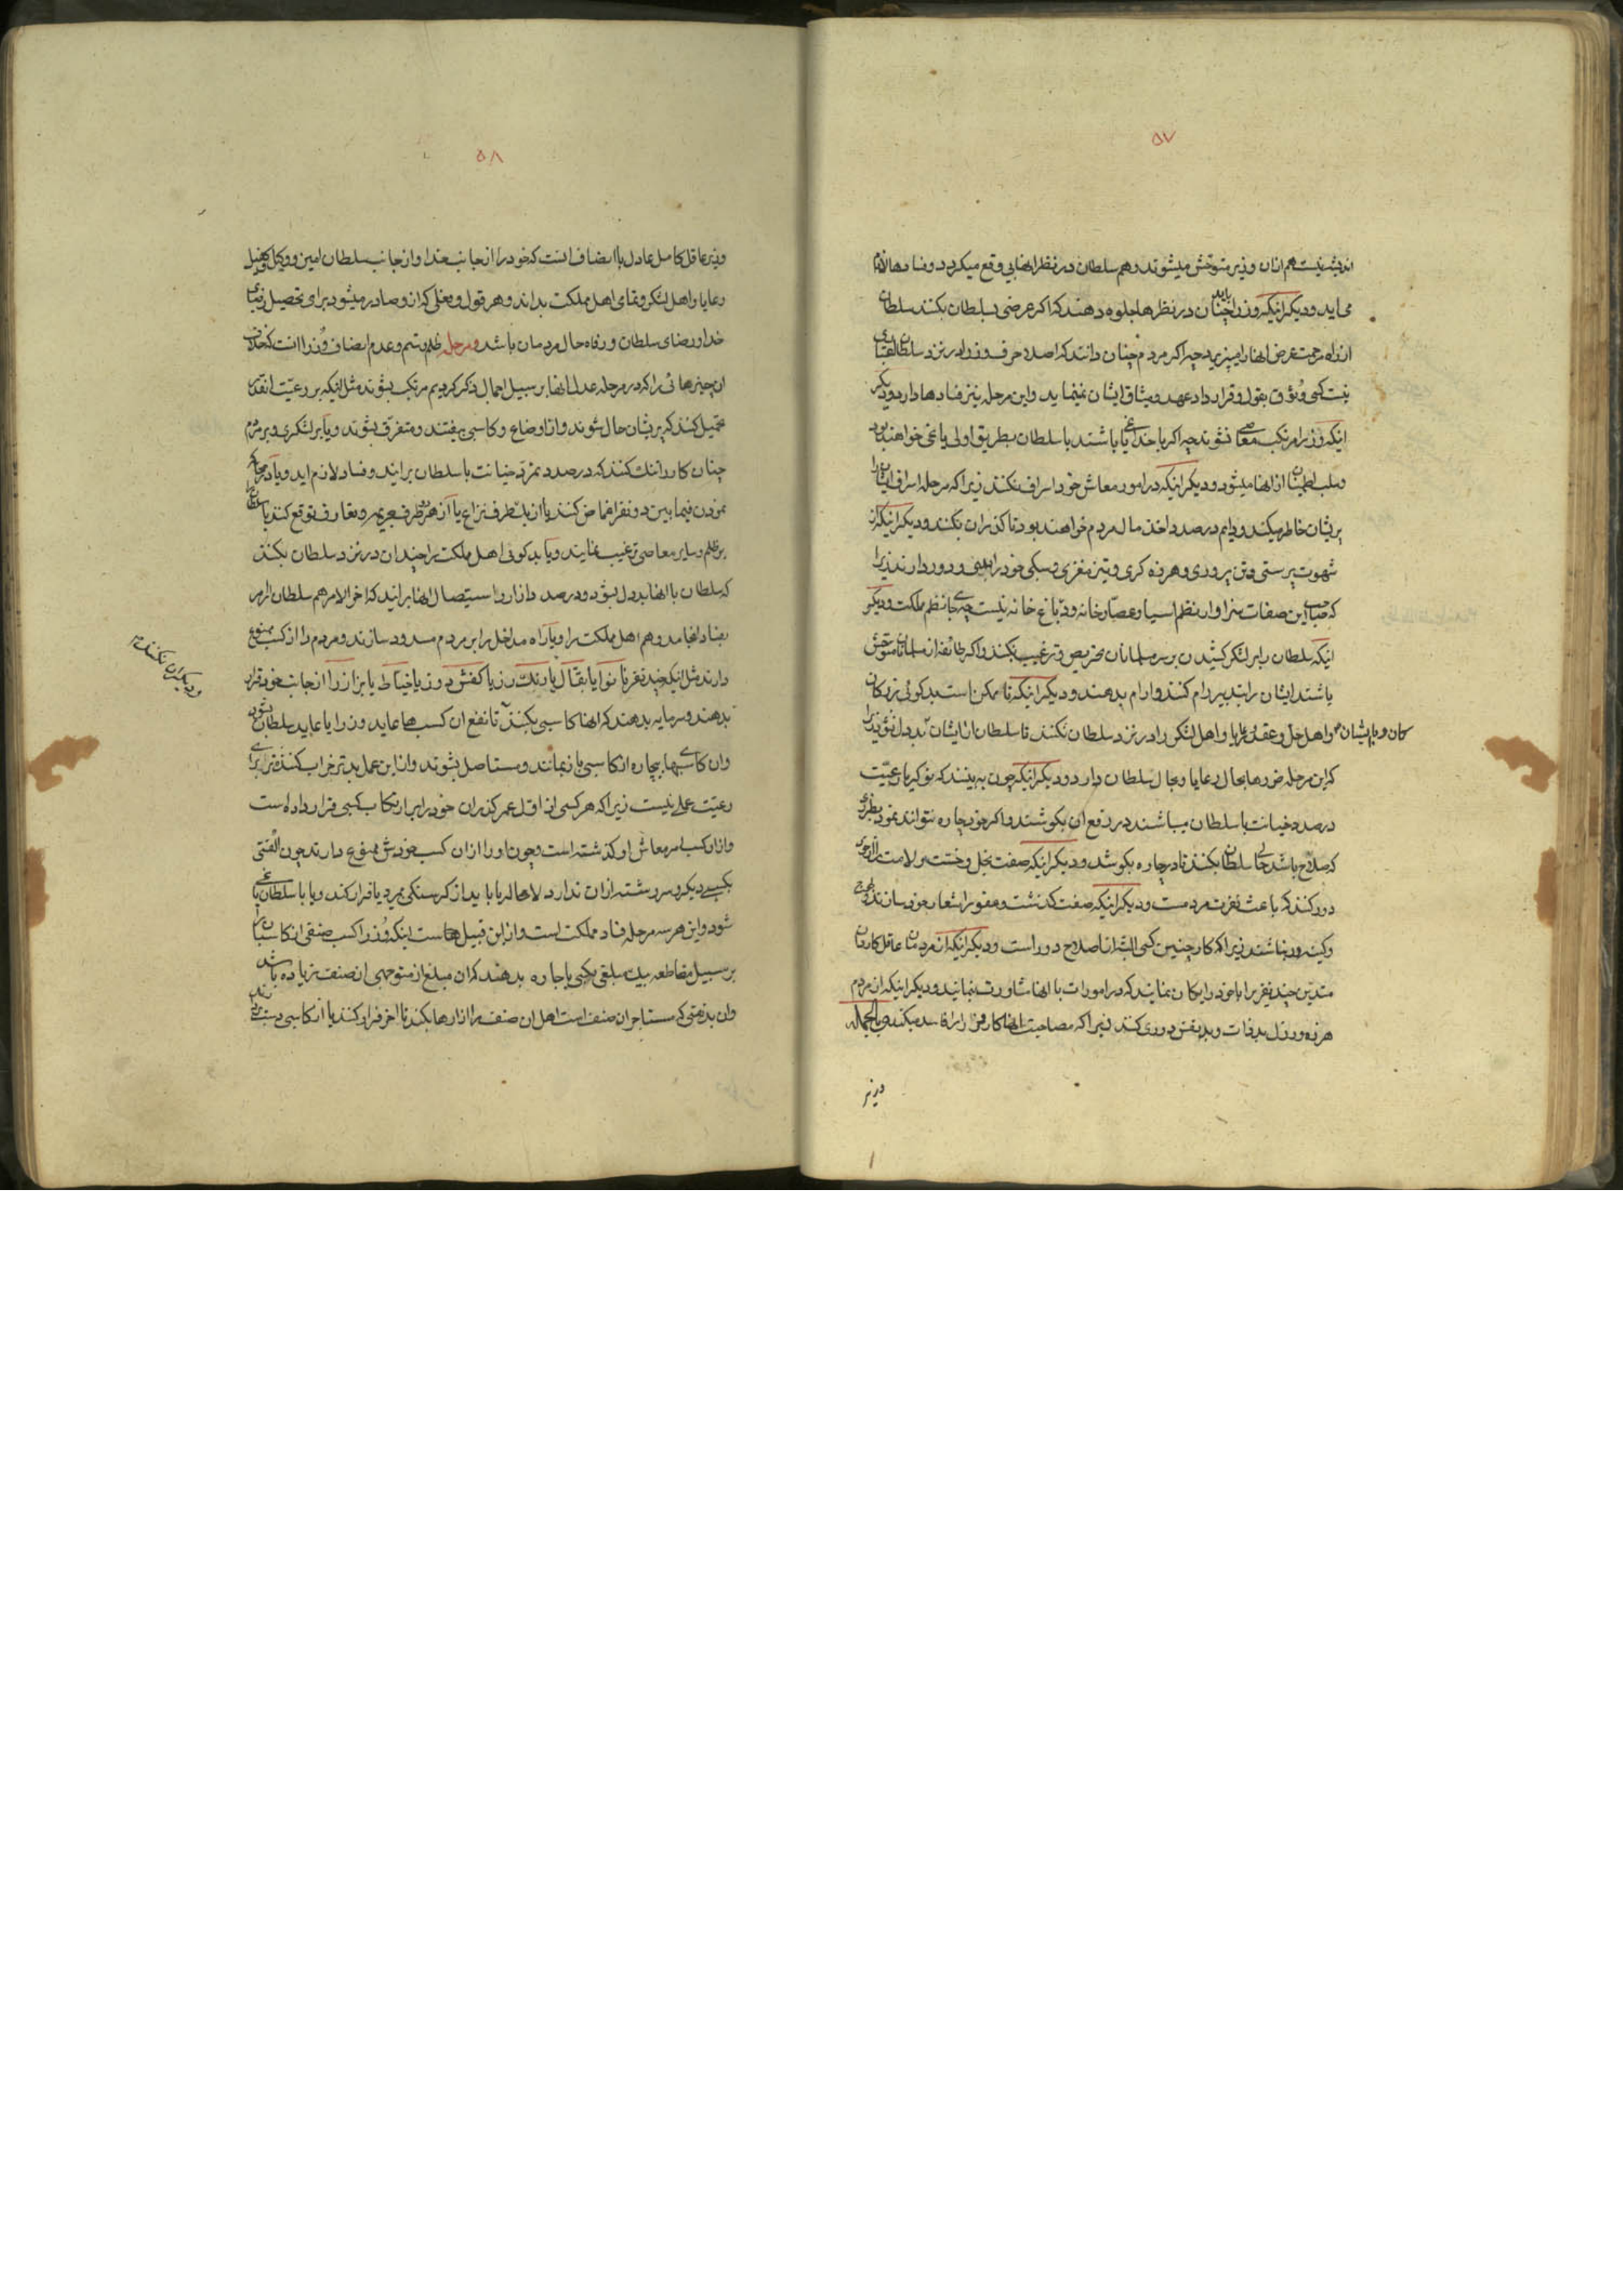 ۵۷
اندیشه نیست هم ازان وزیر متوحش میشوند و هم سلطان در نظر انها بی وقع میکردد و فسادها لازم
می اید و دیکر اینکه وزرا باید چنان در نظرها جلوه دهند که اکر عرضی بسلطان بکنند سلطان
از راه مرحمت عرض انها را میپذیرد چه اکر مردم چنان دانند که اصلا حرف وزرا در نزد سلطان
نیست کسی وُثوق بقول و قرارداد و عهد و میثاق ایشان نمینماید و این مرحله نیز فسادها دارد و دیکر
اینکه وزرا مرتکب معاصی نشوند چه اکر با خدا یاغی باشند با سلطان بطریق اولی یاغی خواهند بود
و سلب اطمینان از انها میشود و دیکر اینکه در امور معاش خود اسراف نکنند زیرا که مرحله اسراف ایشان را
پریشان خاطر میکند و دایم در صدد اخذ مال مردم خواهند بود تا کذران بکنند و دیکر اینکه از
شهوت پرستی و تن پروری و هرزه کری و تیز مغزی و سبکی خود را بری و دور دارند زیرا
که صاحب این صفات سزاوار نظم اسیا و عصارخانه و دباغ خانه نیست چه جای نظم مملکت و دیکر
اینکه سلطان را بر لشکر کشیدن بر سر مسلمانان تحریص و ترغیب نکنند و اکر طائفه از مسلمانان متوحش
باشند ایشان را بتدبیر رام کنند و ارام بدهند و دیکر اینکه تا ممکن است بدکوئی نزدیکان
کان و بایشان و اهل حل و عقد و رعایا و اهل لشکر را در نزد سلطان نکنند تا سلطان از ایشان بددل نشود زیرا
که این مرحله ضررها بحال رعایا و بحال سلطان دارد و دیکر اینکه چون به بینند که نوکر یا رعیت
در صدد خیانت با سلطان میباشند در رفع ان بکوشند و اکر خود چاره نتوانند نمود بطرزی
که صلاح باشد حالی سلطان بکنند تا در چاره بکوشد و دیکر اینکه صفت بخل و خست و لامت را از خود
دور کنند که باعث نفرت مردمست و دیکر اینکه صفت کذشت و عفو را شعار خود سازند و
و کینه ور نباشند زیرا که کار چنین کسی البته از اصلاح دور است و دیکر اینکه از مردمان عاقل کاردان
متدین چند نفر را با خود رایکان نمایند که در امورات با انها مشاورت بنمایند و دیکر اینکه از مردم
هرزه و رذل بدذات و بدنفس دوری کنند زیرا که مصاحبت انها کار وزرا را فاسد میکند و بالجمله
وزیر
۵۸
وزیر عاقل کامل عادل باانصاف انست که خود را از جانب خدا و از جانب سلطان امین و وکیل و کفیل
رعایا و اهل لشکر و تمامی اهل مملکت بداند و هر قول و فعلی که از و صادر میشود برای تحصیل رضای
خدا و رضای سلطان و رفاه حال مردمان باشد و مرحله ظلم و ستم و عدم انصاف وُزرا انست که خلاف
ان چیزهائی را که در مرحله عدل انها بر سبیل اجمال ذکر کردیم مرتکب بشوند مثل اینکه بر رعیت انقدر
تحمیل کنند که پریشان حال شوند و از اوضاع و کاسبی بیفتند و متفرق بشوند و یا بر لشکری و بر مردم
چنان کار را تنک کنند که در صدد تمرد و خیانت با سلطان برایند و فساد لازم اید و یا در محاکمه
نمودن فیما بین دو نفر اغماض کنند یا از یک طرف نزاع یا از هر دو طرف جریمه و تعارف توقع کنند یا سلطان را
بر ظلم و سایر معاصی ترغیب نمایند و یا بدکوئی اهل مملکت را چندان در نزد سلطان بکنند
که سلطان با انها بددل بشود و در صدد و ازار و استیصال انها برایند که اخر الامر هم سلطان را امر
بفساد انجامد و هم اهل مملکت را و یا راه مداخل را بر مردم مسدود سازند و مردم را از کسب ممنوع
دارند مثل اینکه چند نفر نانوا یا بقال یا رنک رز یا کفش دوز یا خیاط یا بزاز را از جانب خود قرار
بدهند و سرمایه بدهند که انها کاسبی بکنند تا نفع ان کسبها عاید وزرا یا عاید سلطان بشود
و دیکران نکنند
و ان کاسبهای بیچاره از کاسبی باز بمانند و مستاصل بشوند و از این عمل بدتر خراب کننده تر برای
رعیت عملی نیست زیرا که هر کسی از اوّل عمر کذران خود را بر ارتکاب کسبی قرار داده است
و از ان کسب امر معاش او کذشته است و چون او را از ان کسب خودش ممنوع دارند چون الفتی
بکسب دیکر و سر رشته از ان ندارد لامحاله یا باید از کرسنکی بمیرد یا فرار کند و یا با سلطان یاغی
شود و این هر سه مرحله فساد مملکت است و از این قبیل هاست اینکه وُزرا کسب صنفی از کاسبان را
بر سبیل مقاطعه بیک مبلغی بکسی باجاره بدهند که ان مبلغ از متوجهی ان صنف زیاده باشد
و ان بدبختی که مستاجر ان صنف است اهل ان صنف را ازارها بکند تا اخر فرار کنند یا از کاسبی دست